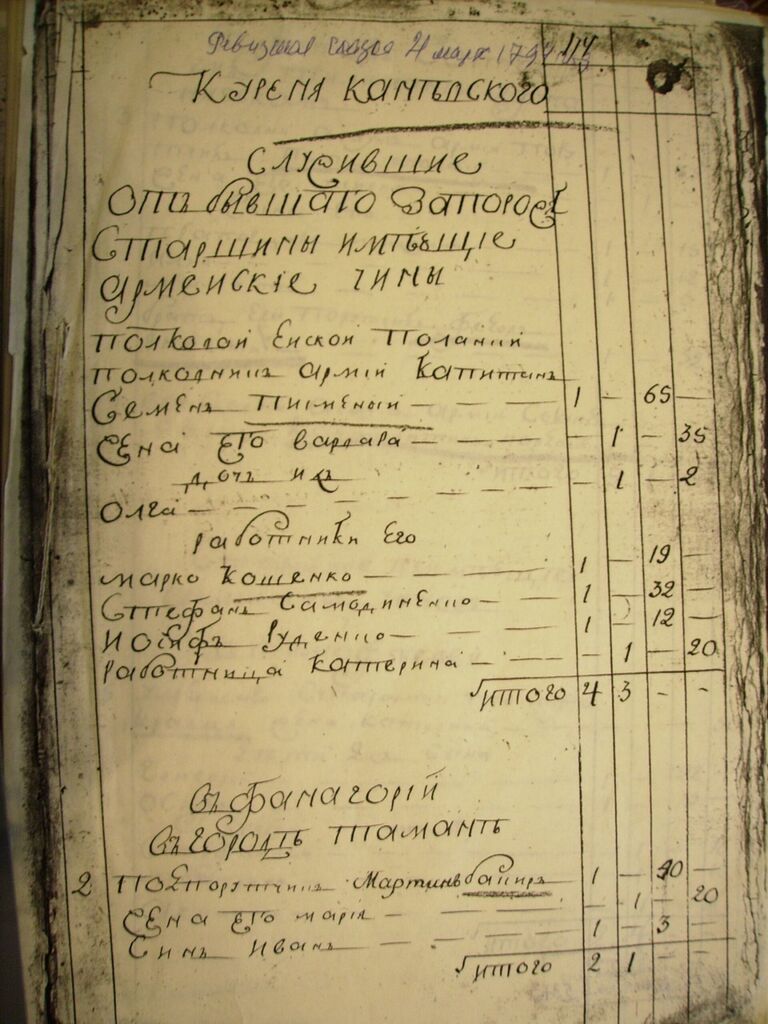 Ревизская сказка 4 март 179
114
Куреня Каневского
Служившие
Отъ бывшаго Запорож
Старшины имѣющіе
армейскіе чины
Полковой Ейской Поланки
полковникъ арміи Капитанъ
Семенъ Писменый — 1 — 65 —
Жена его варвара — — 1 — 35
дочь ихъ
Олга — — 1 — 2
работники Его
марко Кошенко — 1 — 19 —
Стефанъ — 1 32 —
Иосифъ Руденко — 1 — 12
работница Катерина — — 1 — 20
итого 4 3 - -
въ Фанагоріи
въ городѣ таманѣ
2 Подпорутчикъ Мартинъ — 1 — 40 —
Жена его марія — — 1 — 20
Синъ Иванъ — 1 — 3 —
итого 2 1 — —